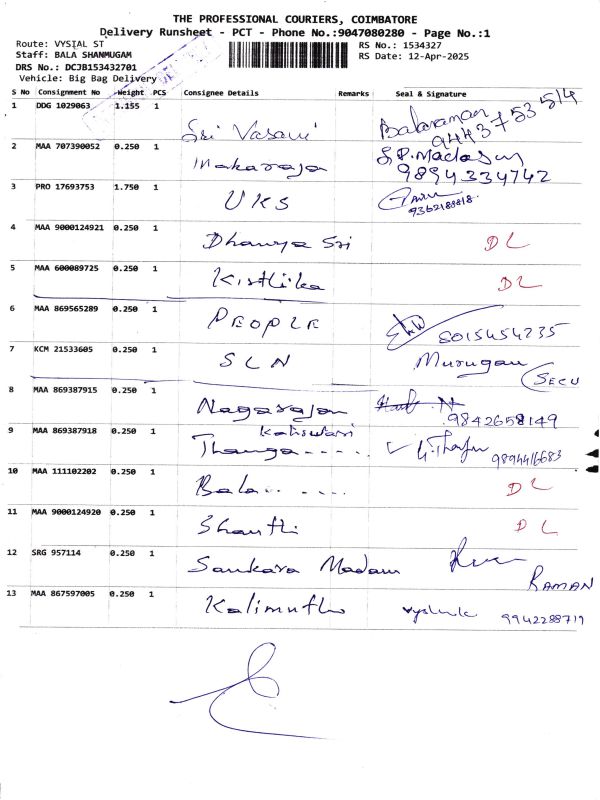 THE PROFESSIONAL COURIERS, COIMBATORE
Delivery Runsheet - PCT - Phone No.:9047080280 - Page No.:1
Route: VYSIAL ST RS No.: 1534327
Staff: BALA SHANMUGAM RS Date: 12-Apr-2025
DRS No.: DCJB153432701
Vehicle: Big Bag Delivery
S No Consignment No Weight PCS Consignee Details Remarks Seal & Signature
1 DDG 1029063 1.155 1 Sri Vasavi Balaraman
9443753514
2 MAA 707390052 0.250 1 Makaraja S.P.Madasamy
9894334742
3 PRO 17693753 1.750 1 UKS
9362188818.
4 MAA 9000124921 0.250 1 Dhanya Sri DL
5 MAA 600089725 0.250 1 Kisthika DL
6 MAA 869565289 0.250 1 PEOPLE 8015454235
7 KCM 21533605 0.250 1 SLN Murugan
SECU
8 MAA 869387915 0.250 1 Nagarajan
9842658149
9 MAA 869387918 0.250 1 Thanga- - - - - 9894416683
10 MAA 111102202 0.250 1 Bala- - - - - DL
11 MAA 9000124920 0.250 1 Shanthi DL
12 SRG 957114 0.250 1 Sankara Madam
RAMAN
13 MAA 867597005 0.250 1 Kalimuthu 9942288719